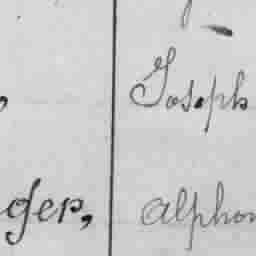 , Joseph
ger, Alphon